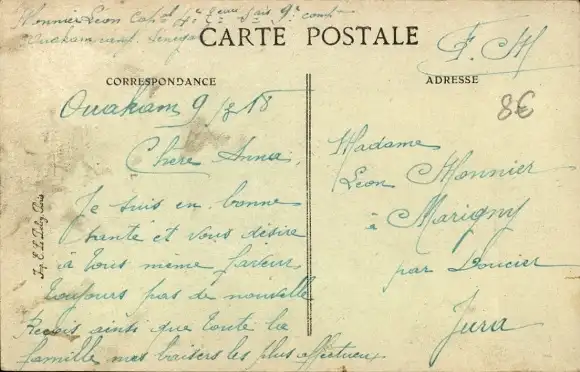 Monnier Léon Cap al 4e
9e comp
Ouakam Sénégal
CARTE POSTALE
F. M
CORRESPONDANCE
ADRESSE
8€
Ouakam 9 18
Chère Anna,
Je suis en bonne
santé et vous désire
à tous même faveur
toujours pas de nouvelle
Reçois ainsi que toute la
famille mes baisers les plus affectueux
Madame
Léon Monnier
à Marigny
par Doucier
Jura